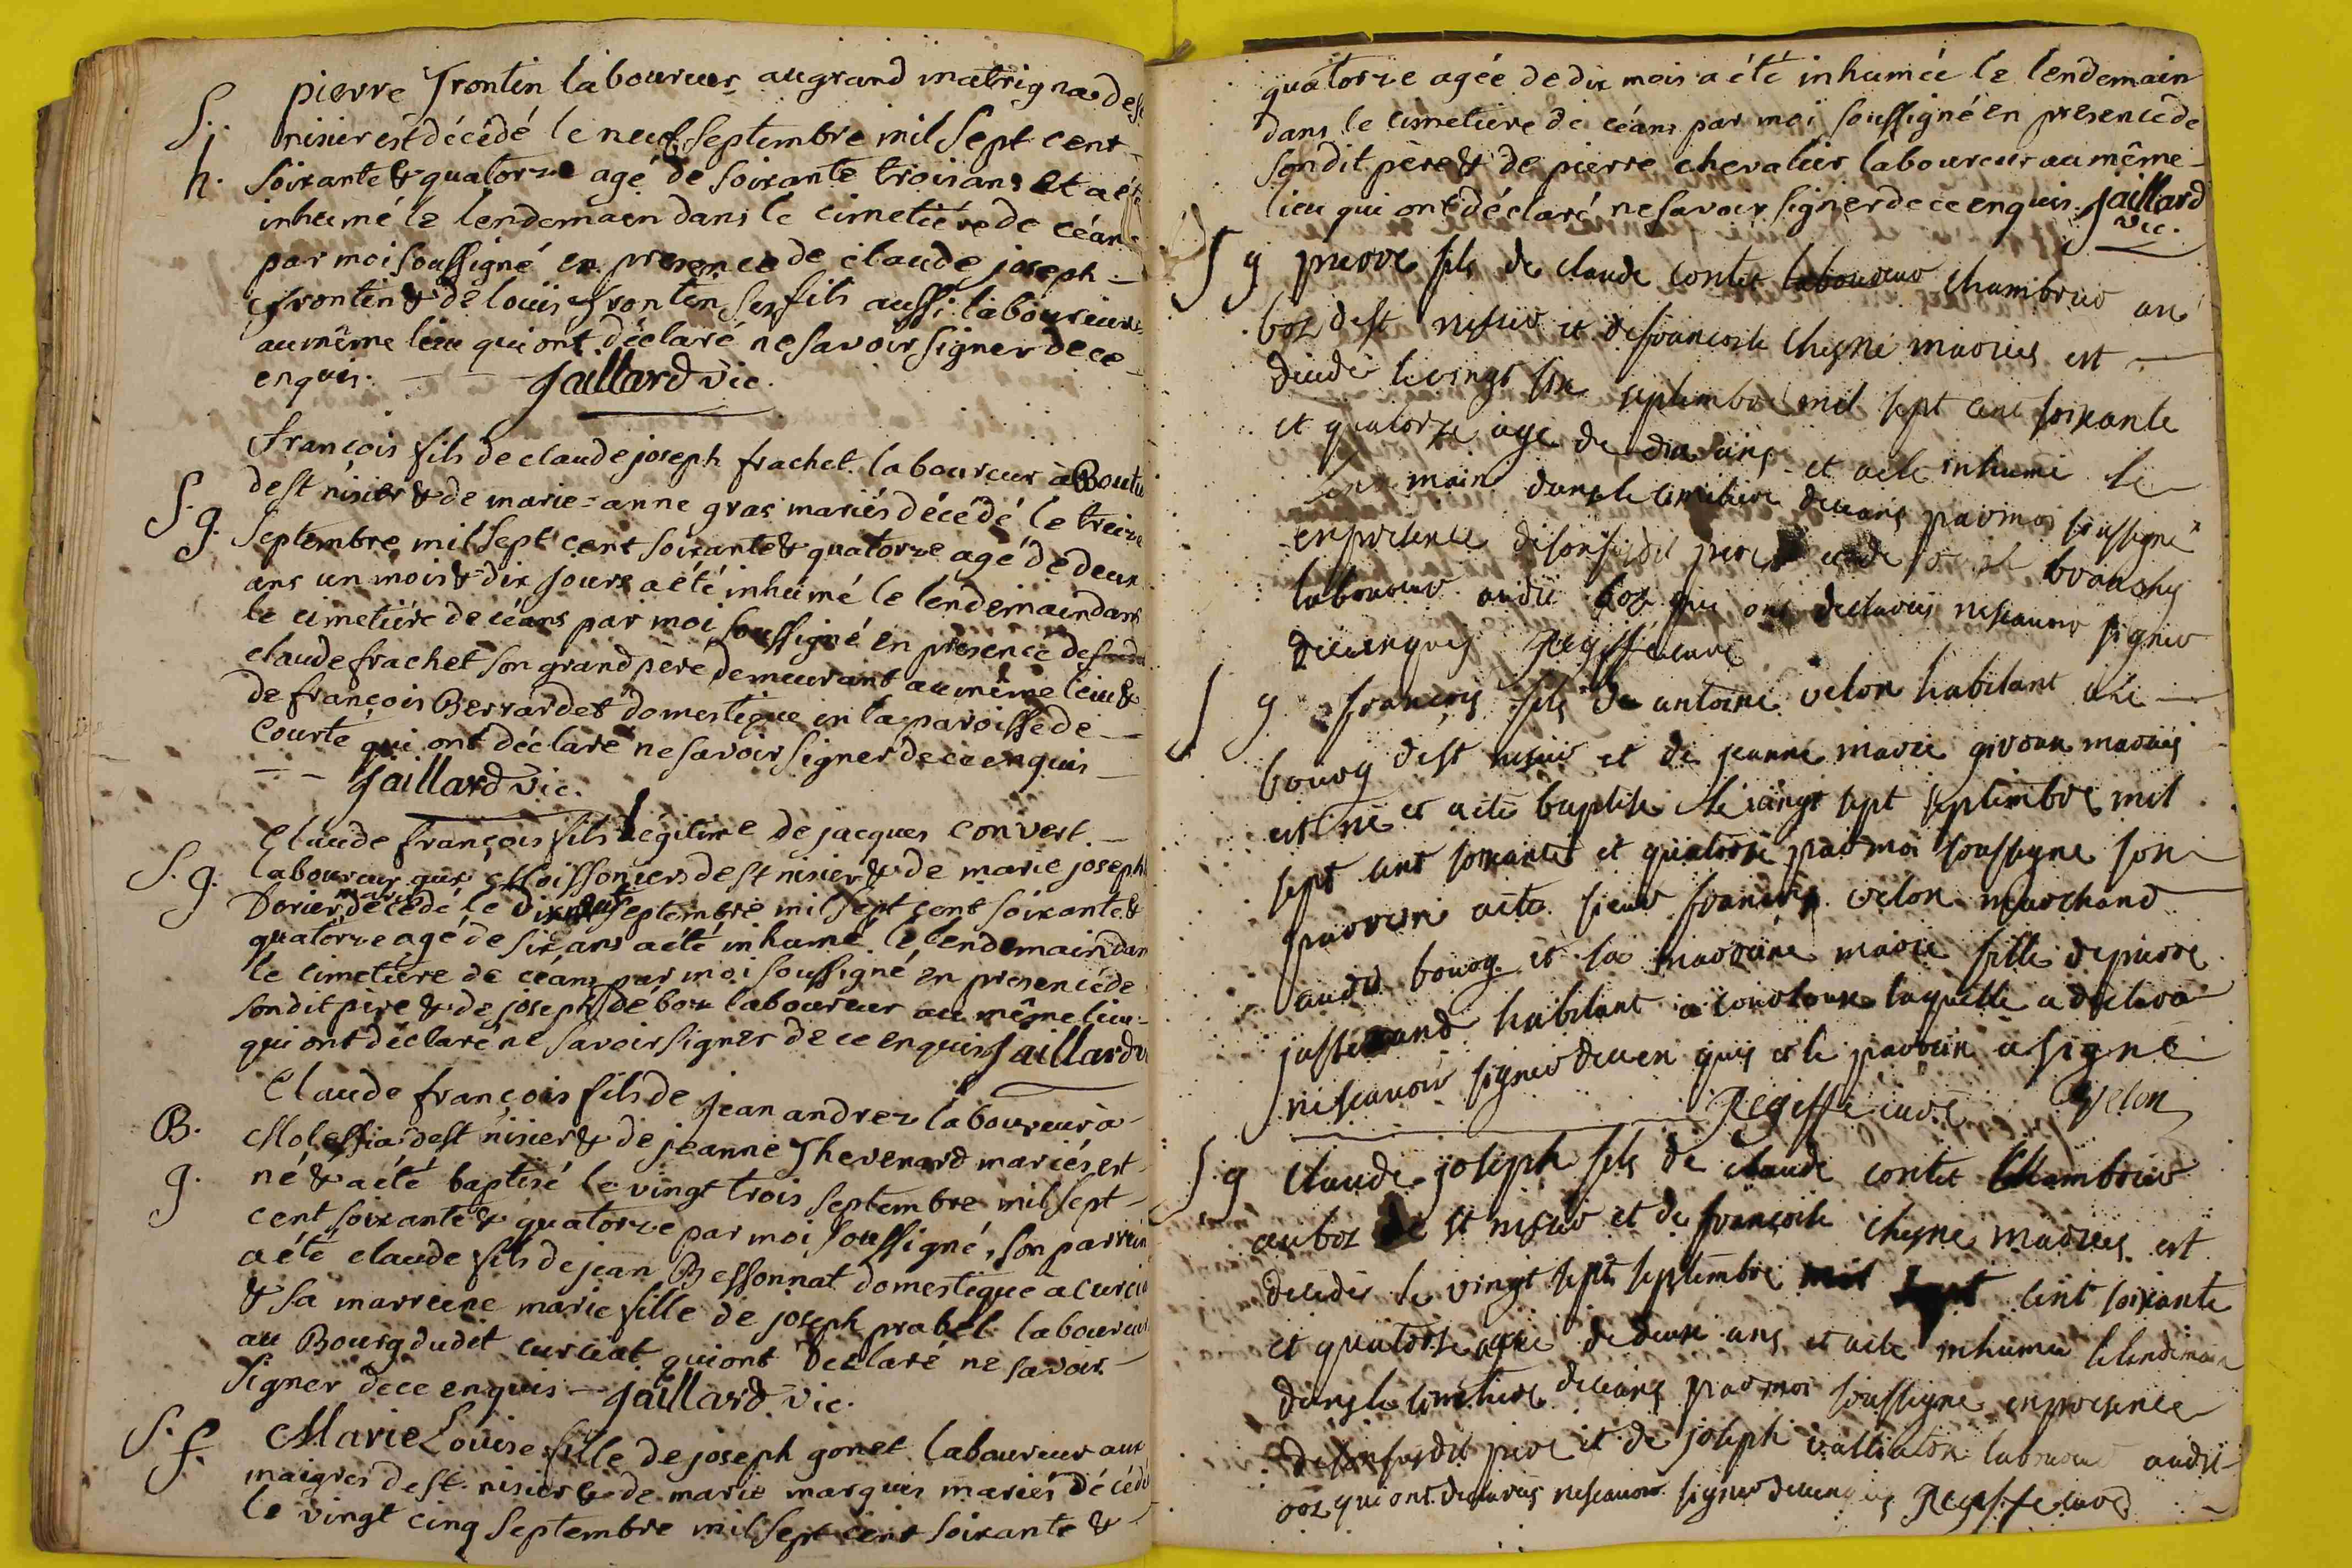 pierre Frontin laboureur au grand matrigna de st
S. nisier est décédé le neuf septembre mil sept cent
h. soixante & quatorze agé de soixante trois ans et a été
inhumé le lendemain dans le cimetière de céans
par moi soussigné en presence de claude joseph
frontin & de louis frontin ses fils aussi laboureurs
au même lieu qui ont déclaré ne savoir signer de ce
enquis. Jaillard vic.
françois fils de claude joseph frachet laboureur à Boutu
de st nisier & de marie-anne gras mariés décédé le treize
S. g. septembre mil sept cent soixante & quatorze agé de deux
ans un mois & dix jours a été inhumé le lendemain dans
le cimetière de céans par moi soussigné en presence de
claude frachet son grand père demeurant au même lieu &
de françois Berrardet domestique en la paroisse de
Courte qui ont déclaré ne savoir signer de ce enquis
Jaillard vic.
Claude françois fils légitime de jacques convert
S. g. laboureur aux Moissonniers de st nisier & de marie joseph
Dorier mariés décédé le septembre mil sept cent soixante &
quatorze agé de six ans a été inhumé le lendemain dans
le cimetière de céans par moi soussigné en presence de
son dit père & de joseph deboz laboureur au même lieu
qui ont déclaré ne savoir signer de ce enquis Jaillard v
Claude françois fils de jean andrez laboureur à
B. Molessia de st nisier & de jeanne Thevenard mariés est
g. né & a été baptisé le vingt trois septembre mil sept
cent soixante & quatorze par moi soussigné, son parrain
a été claude fils de jean Bessonnat domestique a curcia
& sa marreine marie fille de joseph prabel laboureur
au Bourg dudit curciat qui ont declaré ne savoir
signer de ce enquis Jaillard vic.
S. f. Marie Louise fille de joseph gonet laboureur aux
maigres de st. nisier & de marie marquis mariés décédé
le vingt cinq septembre mil sept cent soixante &
quatorze agée de dix mois a été inhumée le lendemain
dans le cimetière de céans par moi soussigné en presence de
son dit père & de pierre chevalier laboureur au même
lieu qui ont déclaré ne savoir signer de ce enquis. Jaillard
vic.
S g pierre fils de claude contet laboureur chambrier au
boz de st nisier et de francoise chesne maries est
décédé le vingt six septembre mil sept cent soixante
et quatorze age de dix ans et a ete inhumé le
main dans le cimetiere deceans par moi soussigné
en presence de son susdit pere et de branchy
laboureur audit boz qui ont declarés ne scavoir signer
de ce enquis Regisse curé
S g francois fils de antoine velon habitant au
bourg de st nisier et de jeanne marie givoux mariés
est né et a été baptisé le vingt sept septembre mil
sept cent soixante et quatorze par moi soussigné son
parrein a été sieur francois velon marchand
audit bourg et sa marraine marie fille de pierre
josserand habitant a laquelle a declaré
ne scavoir signer de ce en quis et le parrein a signé
Regisse curé Velon
S g Claude joseph fils de claude contet Chambrier
au boz de st nisier et de francoise chesne maries est
décédés le vingt sept septembre mil sept cent soixante
et quatorze agé de deux ans et a ete inhumé le lendemain
dans le cimetiere deceans par moi soussigné en presence
de son susdit pere et de joseph laboureur audit
boz qui ont declarés ne scavoir signer de ce enquis Regisse curé